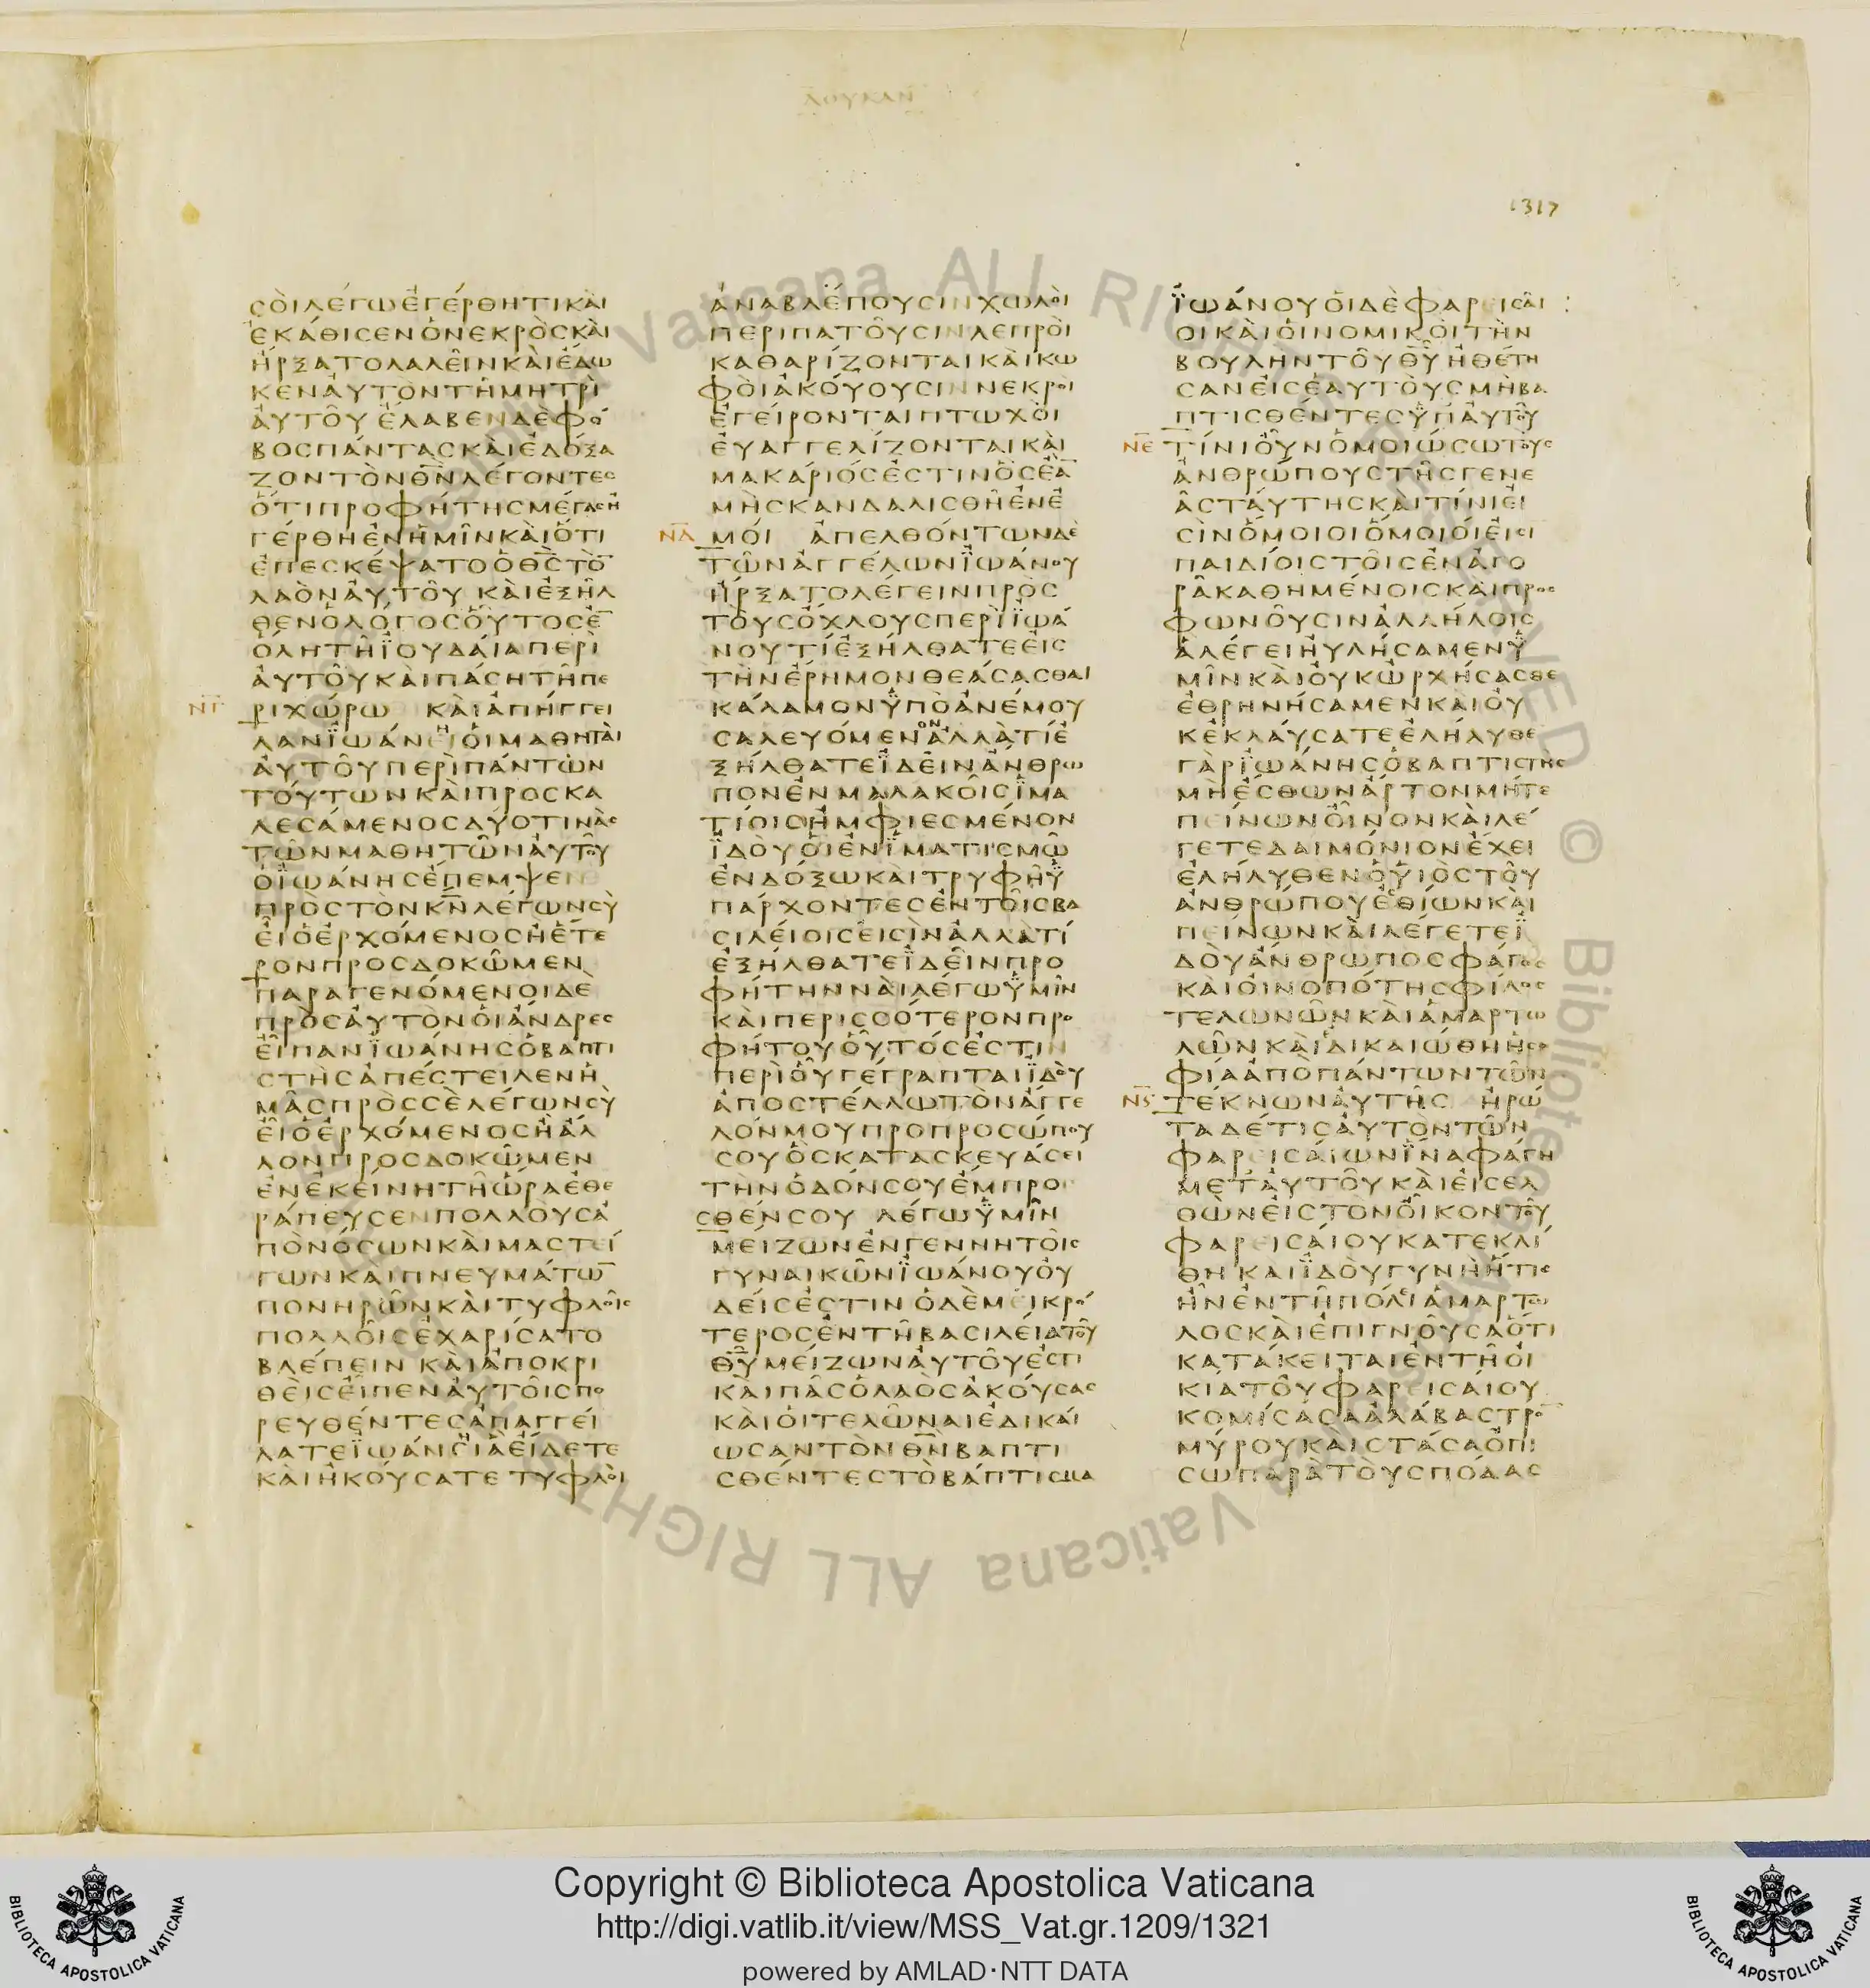 ΛΟΥΚΑΝ
1317
ϹΟΙΛΕΓΩΕΓΕΡΘΗΤΙΚΑΙ
ΕΚΑΘΙϹΕΝΟΝΕΚΡΟϹΚΑΙ
ΗΡΞΑΤΟΛΑΛΕΙΝΚΑΙΕΔΩ
ΚΕΝΑΥΤΟΝΤΗΜΗΤΡΙ
ΑΥΤΟΥ ΕΛΑΒΕΝΔΕΦΟ
ΒΟϹΠΑΝΤΑϹΚΑΙΕΔΟΞΑ
ΖΟΝΤΟΝΘΝ̅ΛΕΓΟΝΤΕϹ
ΟΤΙΠΡΟΦΗΤΗϹΜΕΓΑϹΗ
ΓΕΡΘΗΕΝΗΜΙΝΚΑΙΟΤΙ
ΕΠΕϹΚΕΨΑΤΟΟΘϹ̅ΤΟ̅
ΛΑΟΝΑΥΤΟΥ ΚΑΙΕΞΗΛ
ΘΕΝΟΛΟΓΟϹΟΥΤΟϹΕ̅
ΟΛΗΤΗΪΟΥΔΑΙΑΠΕΡΙ
ΑΥΤΟΥΚΑΙΠΑϹΗΤΗΠΕ
ΝΓ ΡΙΧΩΡΩ ΚΑΙΑΠΗΓΓΕΙ
ΛΑΝΪΩΑΝΗΟΙΜΑΘΗΤΑΙ
ΑΥΤΟΥΠΕΡΙΠΑΝΤΩΝ
ΤΟΥΤΩΝΚΑΙΠΡΟϹΚΑ
ΛΕϹΑΜΕΝΟϹΔΥΟΤΙΝΑϹ
ΤΩΝΜΑΘΗΤΩΝΑΥΤΟΥ
ΟΪΩΑΝΗϹΕΠΕΜΨΕΝ
ΠΡΟϹΤΟΝΚΝ̅ΛΕΓΩΝϹΥ
ΕΙΟΕΡΧΟΜΕΝΟϹΗΕΤΕ
ΡΟΝΠΡΟϹΔΟΚΩΜΕΝ
ΠΑΡΑΓΕΝΟΜΕΝΟΙΔΕ
ΠΡΟϹΑΥΤΟΝΟΙΑΝΔΡΕϹ
ΕΙΠΑΝΪΩΑΝΗϹΟΒΑΠΤΙ
ϹΤΗϹΑΠΕϹΤΕΙΛΕΝΗ
ΜΑϹΠΡΟϹϹΕΛΕΓΩΝϹΥ
ΕΙΟΕΡΧΟΜΕΝΟϹΗΑΛ
ΛΟΝΠΡΟϹΔΟΚΩΜΕΝ
ΕΝΕΚΕΙΝΗΤΗΩΡΑΕΘΕ
ΡΑΠΕΥϹΕΝΠΟΛΛΟΥϹΑ
ΠΟΝΟϹΩΝΚΑΙΜΑϹΤΕΙ
ΓΩΝΚΑΙΠΝΕΥΜΑΤΩ̅
ΠΟΝΗΡΩΝΚΑΙΤΥΦΛΟΙϹ
ΠΟΛΛΟΙϹΕΧΑΡΙϹΑΤΟ
ΒΛΕΠΕΙΝ ΚΑΙΑΠΟΚΡΙ
ΘΕΙϹΕΙΠΕΝΑΥΤΟΙϹΠΟ
ΡΕΥΘΕΝΤΕϹΑΠΑΓΓΕΙ
ΛΑΤΕΪΩΑΝΕΙΑΕΙΔΕΤΕ
ΚΑΙΗΚΟΥϹΑΤΕ ΤΥΦΛΟΙ
ΑΝΑΒΛΕΠΟΥϹΙΝΧΩΛΟΙ
ΠΕΡΙΠΑΤΟΥϹΙΝΛΕΠΡΟΙ
ΚΑΘΑΡΙΖΟΝΤΑΙΚΑΙΚΩ
ΦΟΙΑΚΟΥΟΥϹΙΝΝΕΚΡΟΙ
ΕΓΕΙΡΟΝΤΑΙΠΤΩΧΟΙ
ΕΥΑΓΓΕΛΙΖΟΝΤΑΙΚΑΙ
ΜΑΚΑΡΙΟϹΕϹΤΙΝΟϹΕΑ̅
ΜΗϹΚΑΝΔΑΛΙϹΘΗΕΝΕ
ΝΔ ΜΟΙ ΑΠΕΛΘΟΝΤΩΝΔΕ
ΤΩΝΑΓΓΕΛΩΝΪΩΑΝΟΥ
ΗΡΞΑΤΟΛΕΓΕΙΝΠΡΟϹ
ΤΟΥϹΟΧΛΟΥϹΠΕΡΙΪΩΑ
ΝΟΥΤΙΕΞΗΛΘΑΤΕΕΙϹ
ΤΗΝΕΡΗΜΟΝΘΕΑϹΑϹΘΑΙ
ΚΑΛΑΜΟΝΫΠΟΑΝΕΜΟΥ
ϹΑΛΕΥΟΜΕΝΟΝΑΛΛΑΤΙΕ
ΞΗΛΘΑΤΕΪΔΕΙΝΑΝΘΡΩ
ΠΟΝΕΝΜΑΛΑΚΟΙϹΪΜΑ
ΤΙΟΙϹΗΜΦΙΕϹΜΕΝΟΝ
ΪΔΟΥΟΙΕΝΪΜΑΤΙϹΜΩ
ΕΝΔΟΞΩΚΑΙΤΡΥΦΗΫ
ΠΑΡΧΟΝΤΕϹΕΝΤΟΙϹΒΑ
ϹΙΛΕΙΟΙϹΕΙϹΙΝΑΛΛΑΤΙ
ΕΞΗΛΘΑΤΕΪΔΕΙΝΠΡΟ
ΦΗΤΗΝΝΑΙΛΕΓΩΫΜΙΝ
ΚΑΙΠΕΡΙϹϹΟΤΕΡΟΝΠΡΟ
ΦΗΤΟΥΟΥΤΟϹΕϹΤΙΝ
ΠΕΡΙΟΥΓΕΓΡΑΠΤΑΙΪΔΟΥ
ΑΠΟϹΤΕΛΛΩΤΟΝΑΓΓΕ
ΛΟΝΜΟΥΠΡΟΠΡΟϹΩΠΟΥ
ϹΟΥΟϹΚΑΤΑϹΚΕΥΑϹΕΙ
ΤΗΝΟΔΟΝϹΟΥΕΜΠΡΟ
ϹΘΕΝϹΟΥ ΛΕΓΩΫΜΙΝ
ΜΕΙΖΩΝΕΝΓΕΝΝΗΤΟΙϹ
ΓΥΝΑΙΚΩΝΪΩΑΝΟΥΟΥ
ΔΕΙϹΕϹΤΙΝ ΟΔΕΜΕΙΚΡΟ
ΤΕΡΟϹΕΝΤΗΒΑϹΙΛΕΙΑΤΟΥ
ΘΥ̅ΜΕΙΖΩΝΑΥΤΟΥΕϹΤΙ
ΚΑΙΠΑϹΟΛΑΟϹΑΚΟΥϹΑϹ
ΚΑΙΟΙΤΕΛΩΝΑΙΕΔΙΚΑΙ
ΩϹΑΝΤΟΝΘΝ̅ΒΑΠΤΙ
ϹΘΕΝΤΕϹΤΟΒΑΠΤΙϹΜΑ
ΪΩΑΝΟΥΟΙΔΕΦΑΡΕΙϹΑΙ
ΟΙΚΑΙΟΙΝΟΜΙΚΟΙΤΗΝ
ΒΟΥΛΗΝΤΟΥΘΥ̅ΗΘΕΤΗ
ϹΑΝΕΙϹΕΑΥΤΟΥϹΜΗΒΑ
ΠΤΙϹΘΕΝΤΕϹΫΠΑΥΤΟΥ
ΝΕ ΤΙΝΙΟΥΝΟΜΟΙΩϹΩΤΟΥϹ
ΑΝΘΡΩΠΟΥϹΤΗϹΓΕΝΕ
ΑϹΤΑΥΤΗϹΚΑΙΤΙΝΙΕΙ
ϹΙΝΟΜΟΙΟΙΟΜΟΙΟΙΕΙϹΙ
ΠΑΙΔΙΟΙϹΤΟΙϹΕΝΑΓΟ
ΡΑΚΑΘΗΜΕΝΟΙϹΚΑΙΠΡΟϹ
ΦΩΝΟΥϹΙΝΑΛΛΗΛΟΙϹ
ΑΛΕΓΕΙΗΥΛΗϹΑΜΕΝΫ
ΜΙΝΚΑΙΟΥΚΩΡΧΗϹΑϹΘΕ
ΕΘΡΗΝΗϹΑΜΕΝΚΑΙΟΥ
ΚΕΚΛΑΥϹΑΤΕΕΛΗΛΥΘΕ
ΓΑΡΪΩΑΝΗϹΟΒΑΠΤΙϹΤΗϹ
ΜΗΕϹΘΩΝΑΡΤΟΝΜΗΤΕ
ΠΕΙΝΩΝΟΙΝΟΝΚΑΙΛΕ
ΓΕΤΕΔΑΙΜΟΝΙΟΝΕΧΕΙ
ΕΛΗΛΥΘΕΝΟΥΙΟϹΤΟΥ
ΑΝΘΡΩΠΟΥΕϹΘΙΩΝΚΑΙ
ΠΕΙΝΩΝΚΑΙΛΕΓΕΤΕΪ
ΔΟΥΑΝΘΡΩΠΟϹΦΑΓΟϹ
ΚΑΙΟΙΝΟΠΟΤΗϹΦΙΛΟϹ
ΤΕΛΩΝΩΝΚΑΙΑΜΑΡΤΩ
ΛΩΝΚΑΙΕΔΙΚΑΙΩΘΗΗϹΟ
ΦΙΑΑΠΟΠΑΝΤΩΝΤΩΝ
ΝϚ ΤΕΚΝΩΝΑΥΤΗϹ ΗΡΩ
ΤΑΔΕΤΙϹΑΥΤΟΝΤΩΝ
ΦΑΡΕΙϹΑΙΩΝΪΝΑΦΑΓΗ
ΜΕΤΑΥΤΟΥΚΑΙΕΙϹΕΛ
ΘΩΝΕΙϹΤΟΝΟΙΚΟΝΤΟΥ
ΦΑΡΕΙϹΑΙΟΥΚΑΤΕΚΛΙ
ΘΗ ΚΑΙΪΔΟΥΓΥΝΗΗΤΙϹ
ΗΝΕΝΤΗΠΟΛΕΙΑΜΑΡΤΩ
ΛΟϹΚΑΙΕΠΙΓΝΟΥϹΑΟΤΙ
ΚΑΤΑΚΕΙΤΑΙΕΝΤΗΟΙ
ΚΙΑΤΟΥΦΑΡΕΙϹΑΙΟΥ
ΚΟΜΙϹΑϹΑΑΛΑΒΑϹΤΡΟ̅
ΜΥΡΟΥΚΑΙϹΤΑϹΑΟΠΙ
ϹΩΠΑΡΑΤΟΥϹΠΟΔΑϹ
Vaticana ALL RIGHTS RESERVED © Biblioteca
Copyright © Biblioteca Apostolica Vaticana
http://digi.vatlib.it/view/MSS_Vat.gr.1209/1321
powered by AMLAD·NTT DATA
BIBLIOTECA APOSTOLICA VATICANA
BIBLIOTECA APOSTOLICA VATICANA